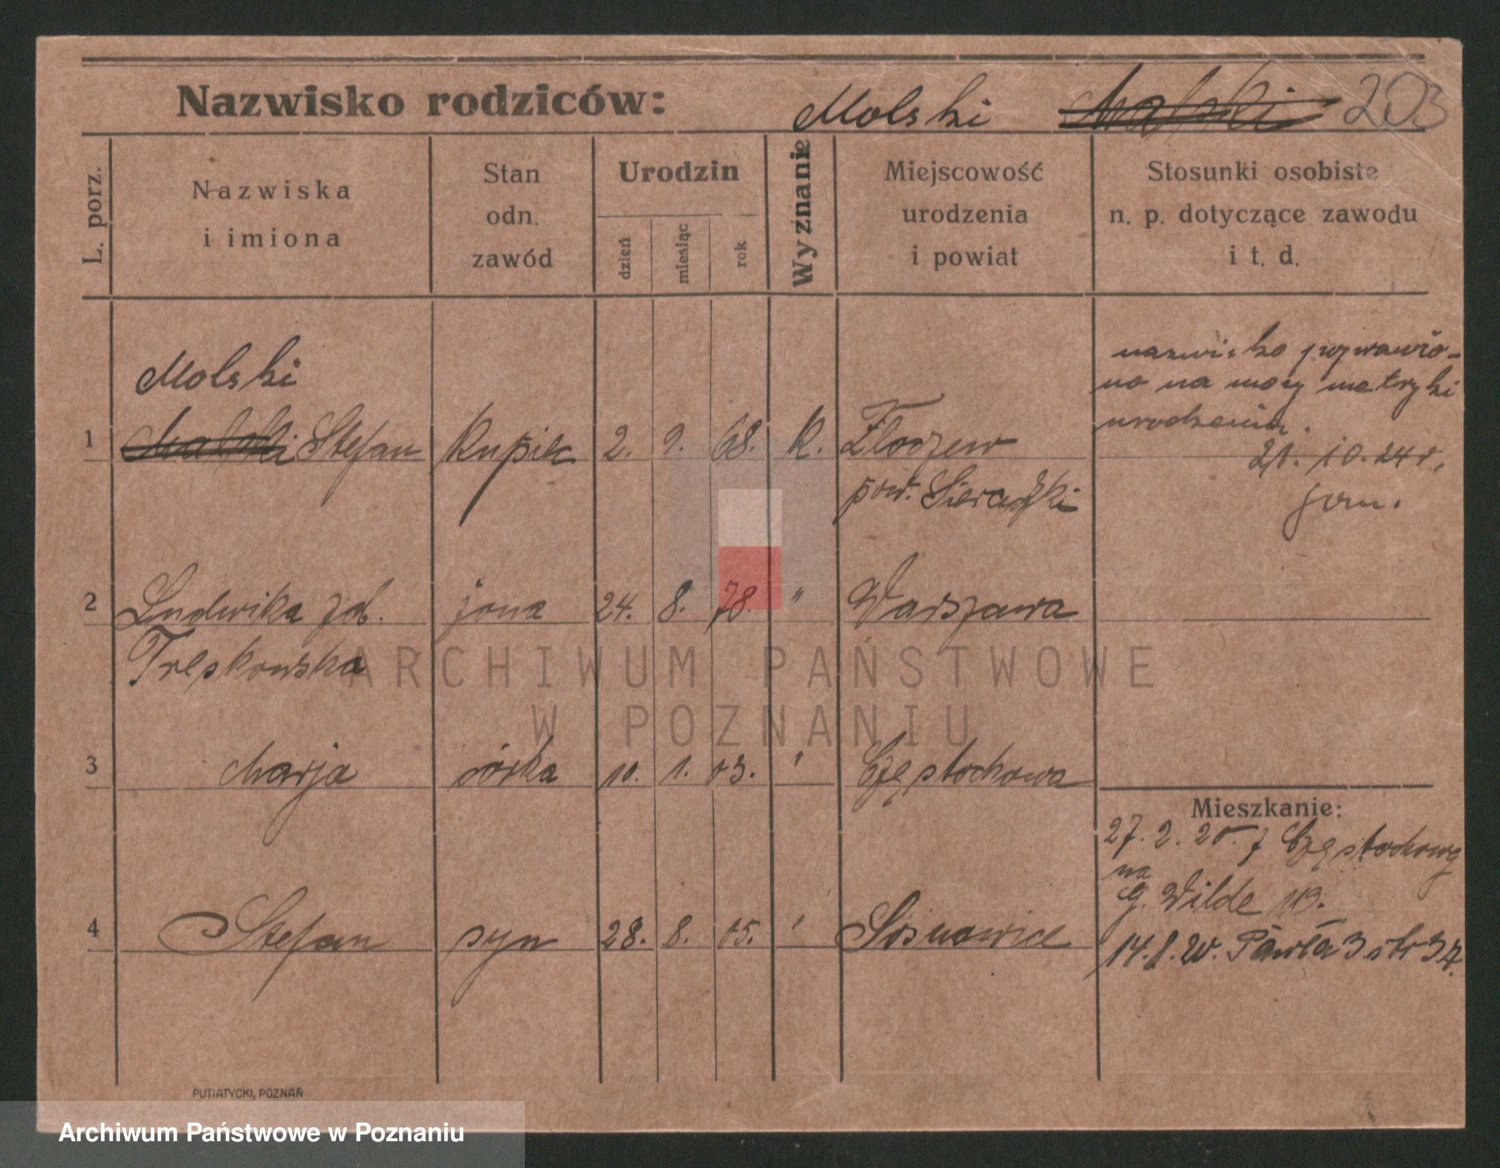 Nazwisko rodziców: Molski Malski 203
L. porz.
Nazwiska
i imiona
Stan
odn.
zawód
Urodzin
dzień
miesiąc
rok
Wyznanie
Miejscowość
urodzenia
i powiat
Stosunki osobiste
n. p. dotyczące zawodu
i t. d.
nazwisko poprawio-
no na mocy metryki
urodzenia.
21. 10. 24 r.
Molski
1 Malski Stefan kupiec 2. 9. 68. k. Złoczew
pow. Sieradzki
2 Ludwika żona 24. 8. 78. " Warszawa
Treskowska
3 Marja córka 10. 1. 03. " Częstochowa
4 Stefan syn 28. 8. 05. " Sosnowice
Mieszkanie:
27. 2. 20. z Częstochowy
na
g. Wilde 113.
14. 8. 20. Pawła 3
PUTIATYCKI, POZNAŃ
ARCHIWUM PAŃSTWOWE
W POZNANIU
Archiwum Państwowe w Poznaniu